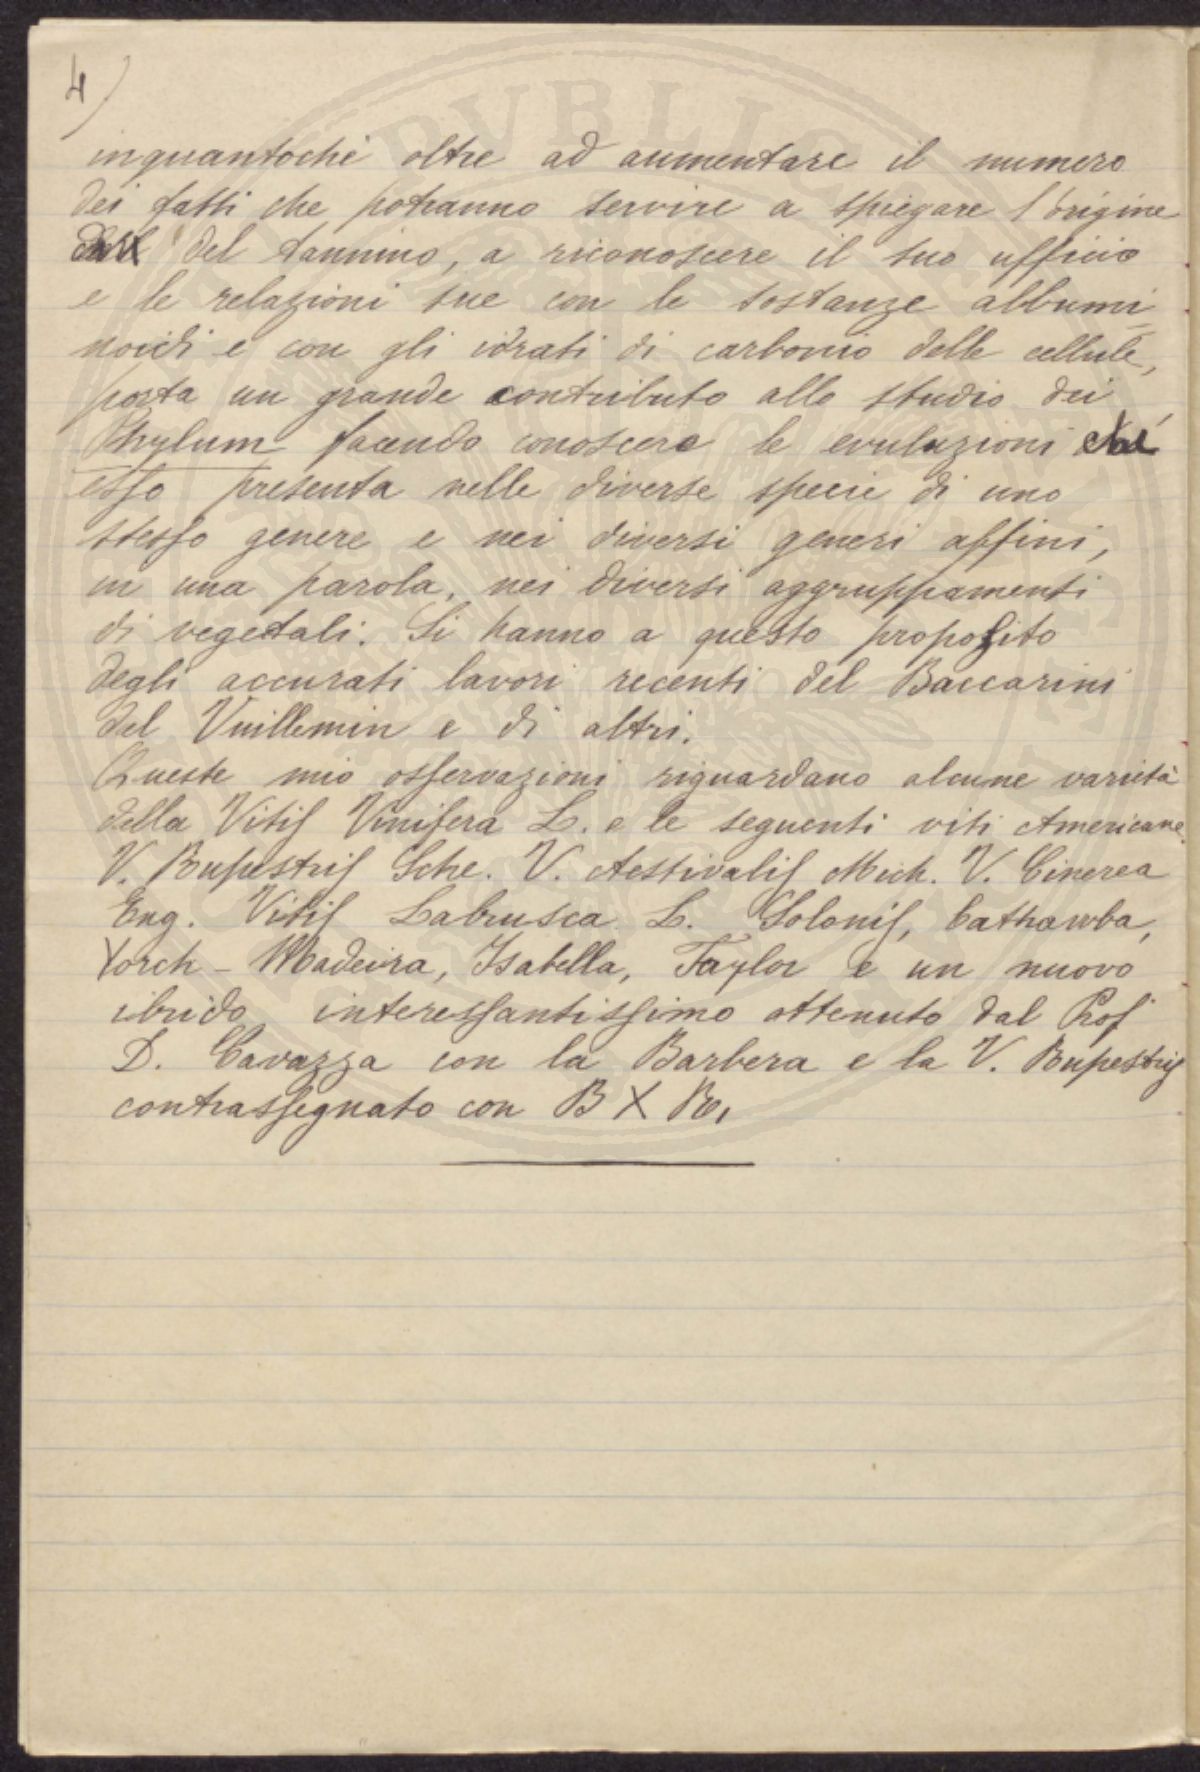 4)
inquantochè oltre ad aumentare il numero
dei fatti che potranno servire a spiegare l'origine
del tannino, a riconoscere il suo ufficio
e le relazioni sue con le sostanze albumi
noidi e con gli idrati di carbonio delle cellule,
porta un grande contributo allo studio dei
Phylum facendo conoscere le evoluzioni che
esso presenta nelle diverse specie di uno
stesso genere e nei diversi generi affini,
in una parola, nei diversi aggruppamenti
di vegetali. Si hanno a questo proposito
degli accurati lavori recenti del Baccarini
del Vuillemin e di altri.
Queste mio osservazioni riguardano alcune varietà
della Vitis Vinifera L. e le seguenti viti Americane.
V. Rupestris Sche. V. Aestivalis Mich. V. Cinerea
Eng. Vitis Labrusca L. Solonis, Cathawba,
Yorch - Madeira, Isabella, Taylor e un nuovo
ibrido interessantissimo ottenuto dal Prof
D. Cavazza con la Barbera e la V. Rupestris
contrassegnato con B X R,